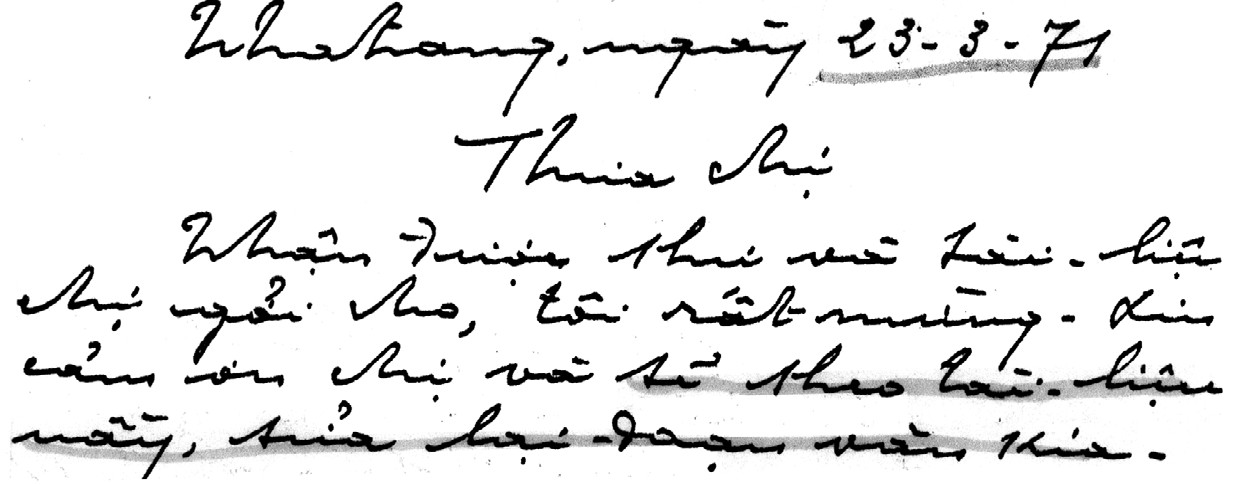 Nhatrang, ngày 23-3-71
Thưa chị
Nhận được thư và tài-liệu
chị gởi cho, tôi rất mừng. Xin
cảm ơn chị và sẽ theo tài-liệu
nầy, sửa lại đoạn văn kia.